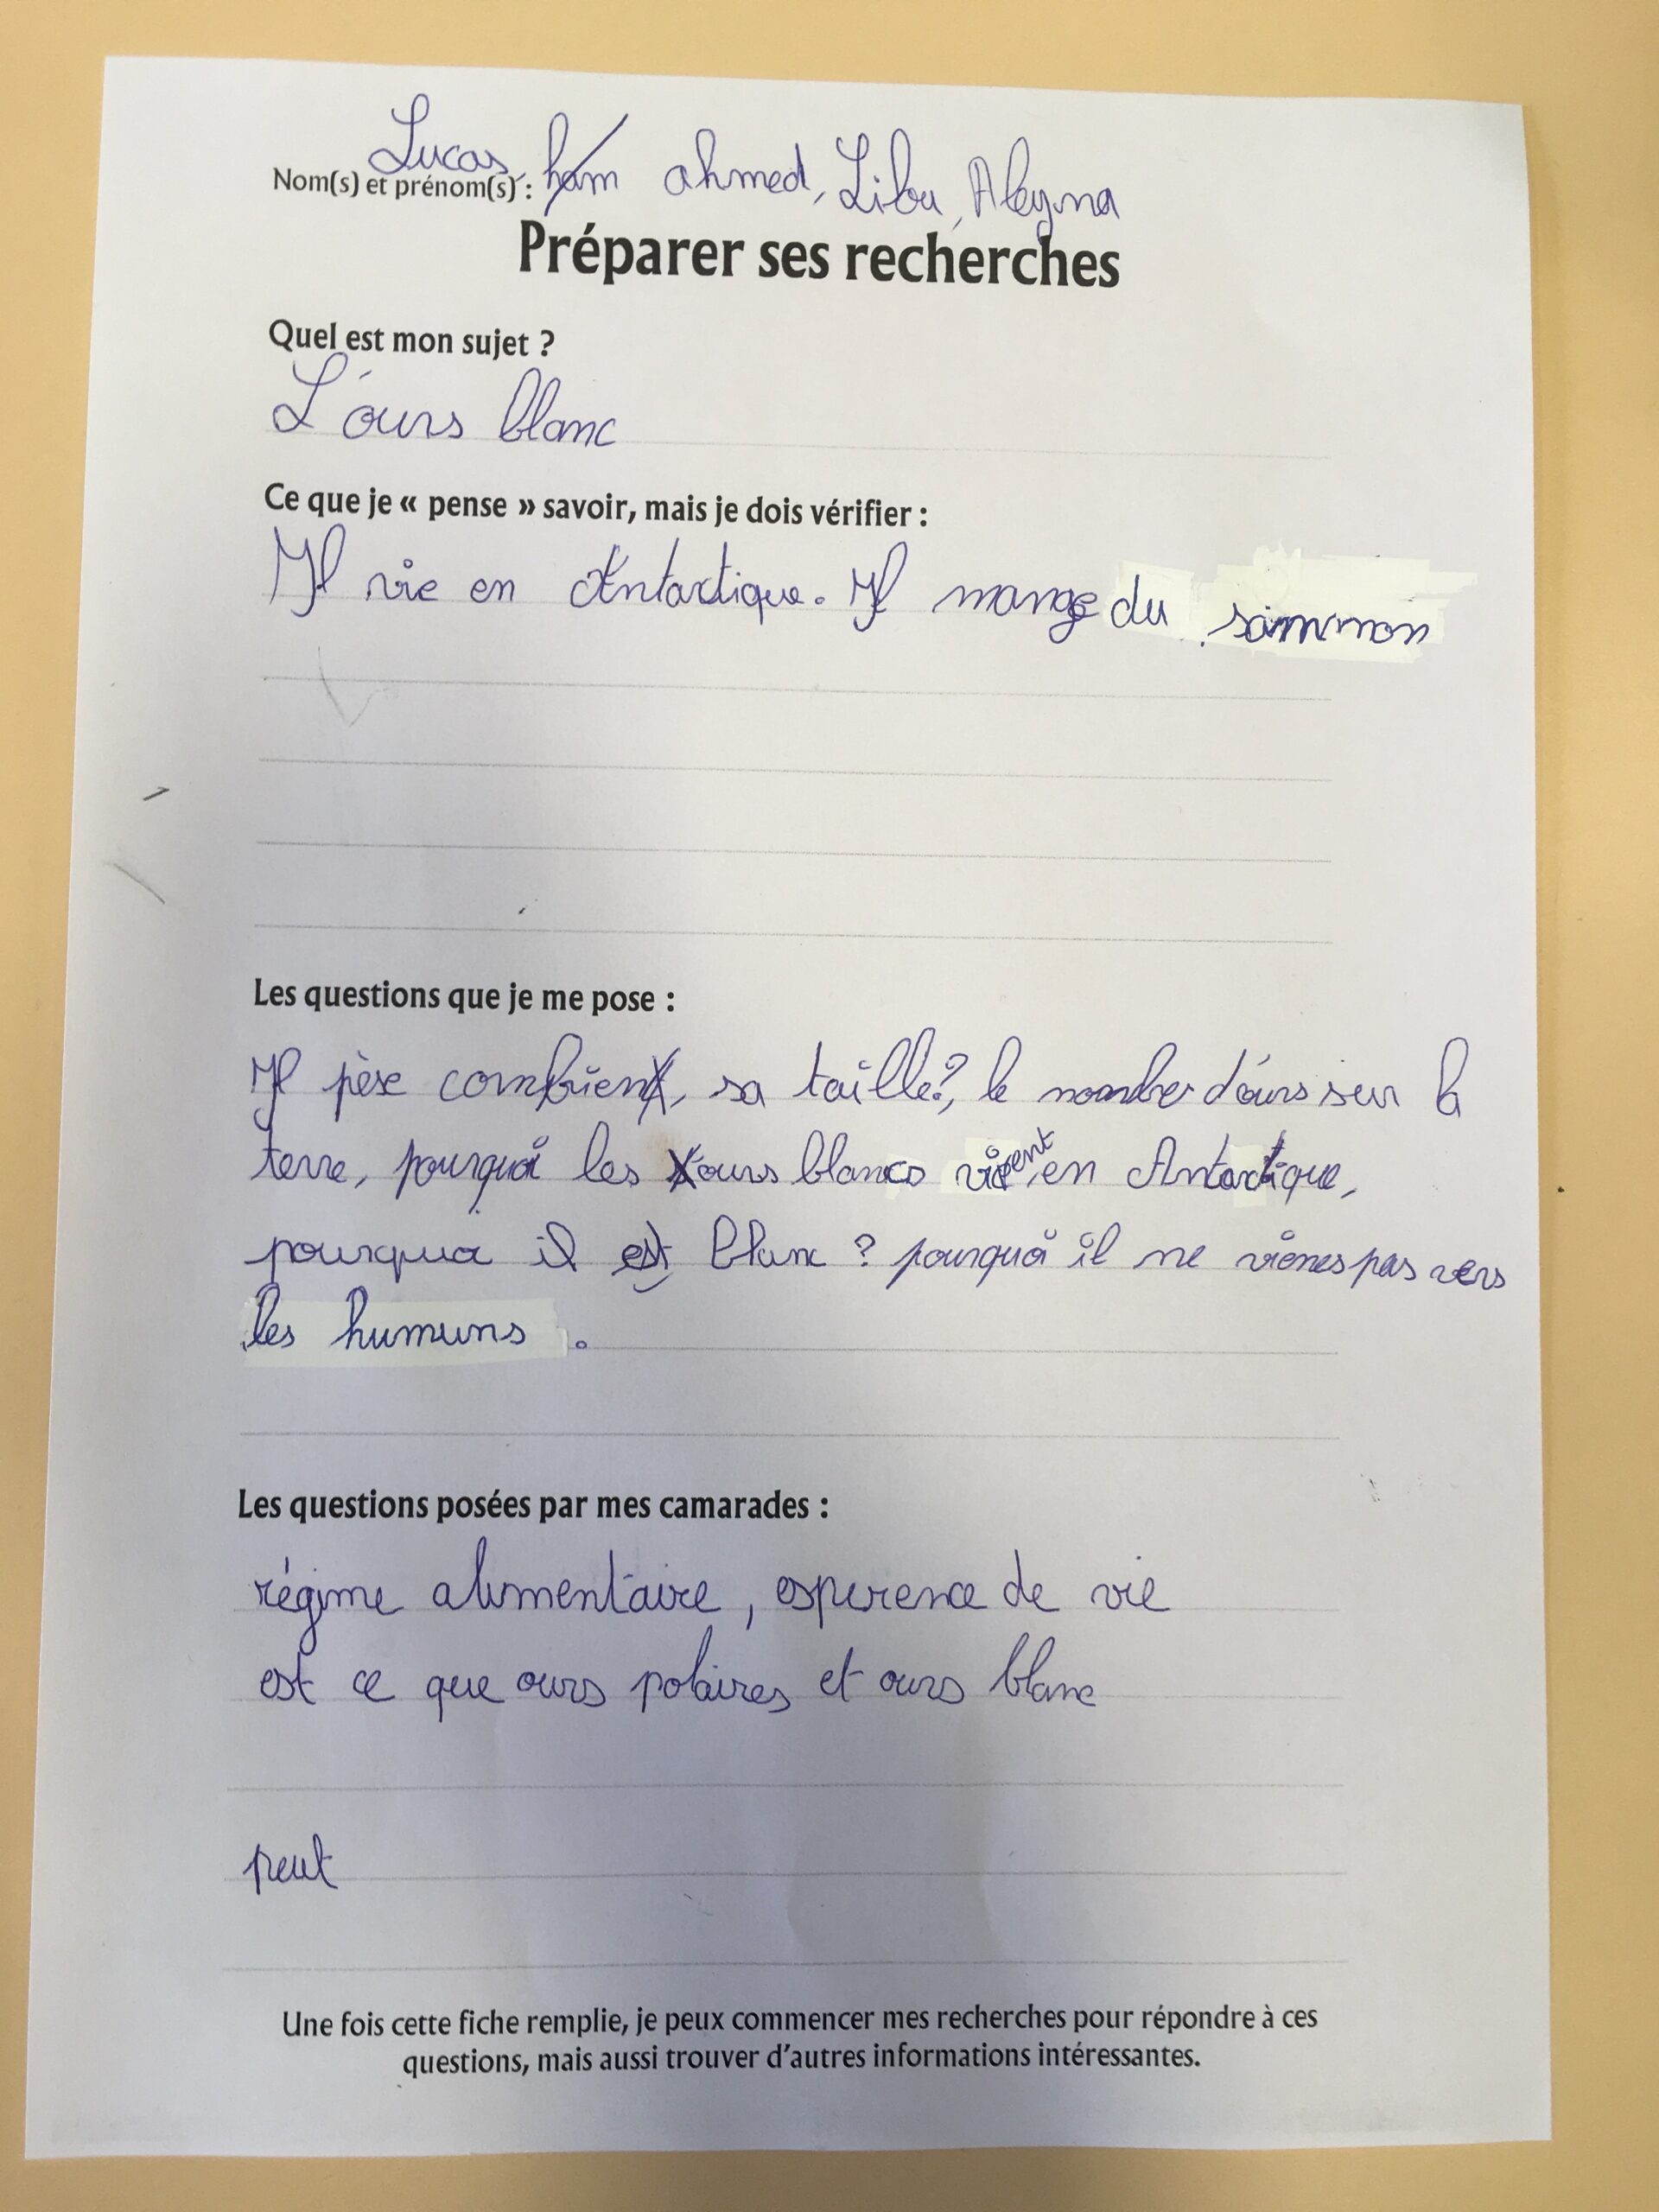 Lucas, ham ahmed, Lilou, Aleyna
Nom(s) et prénom(s) :
Préparer ses recherches
Quel est mon sujet ?
L'ours blanc
Ce que je « pense » savoir, mais je dois vérifier :
Il vie en Antartique. Il mange du sammon
Les questions que je me pose :
Il pèse combien, sa taille?, le nombre d'ours sur la
terre, pourquoi les ours blancs vivent en Antartique,
pourquoi il est blanc ? pourquoi il ne vienes pas vers
les humuns.
Les questions posées par mes camarades :
régime alimentaire, esperence de vie
est ce que ours polaires et ours blanc
peut
Une fois cette fiche remplie, je peux commencer mes recherches pour répondre à ces
questions, mais aussi trouver d'autres informations intéressantes.